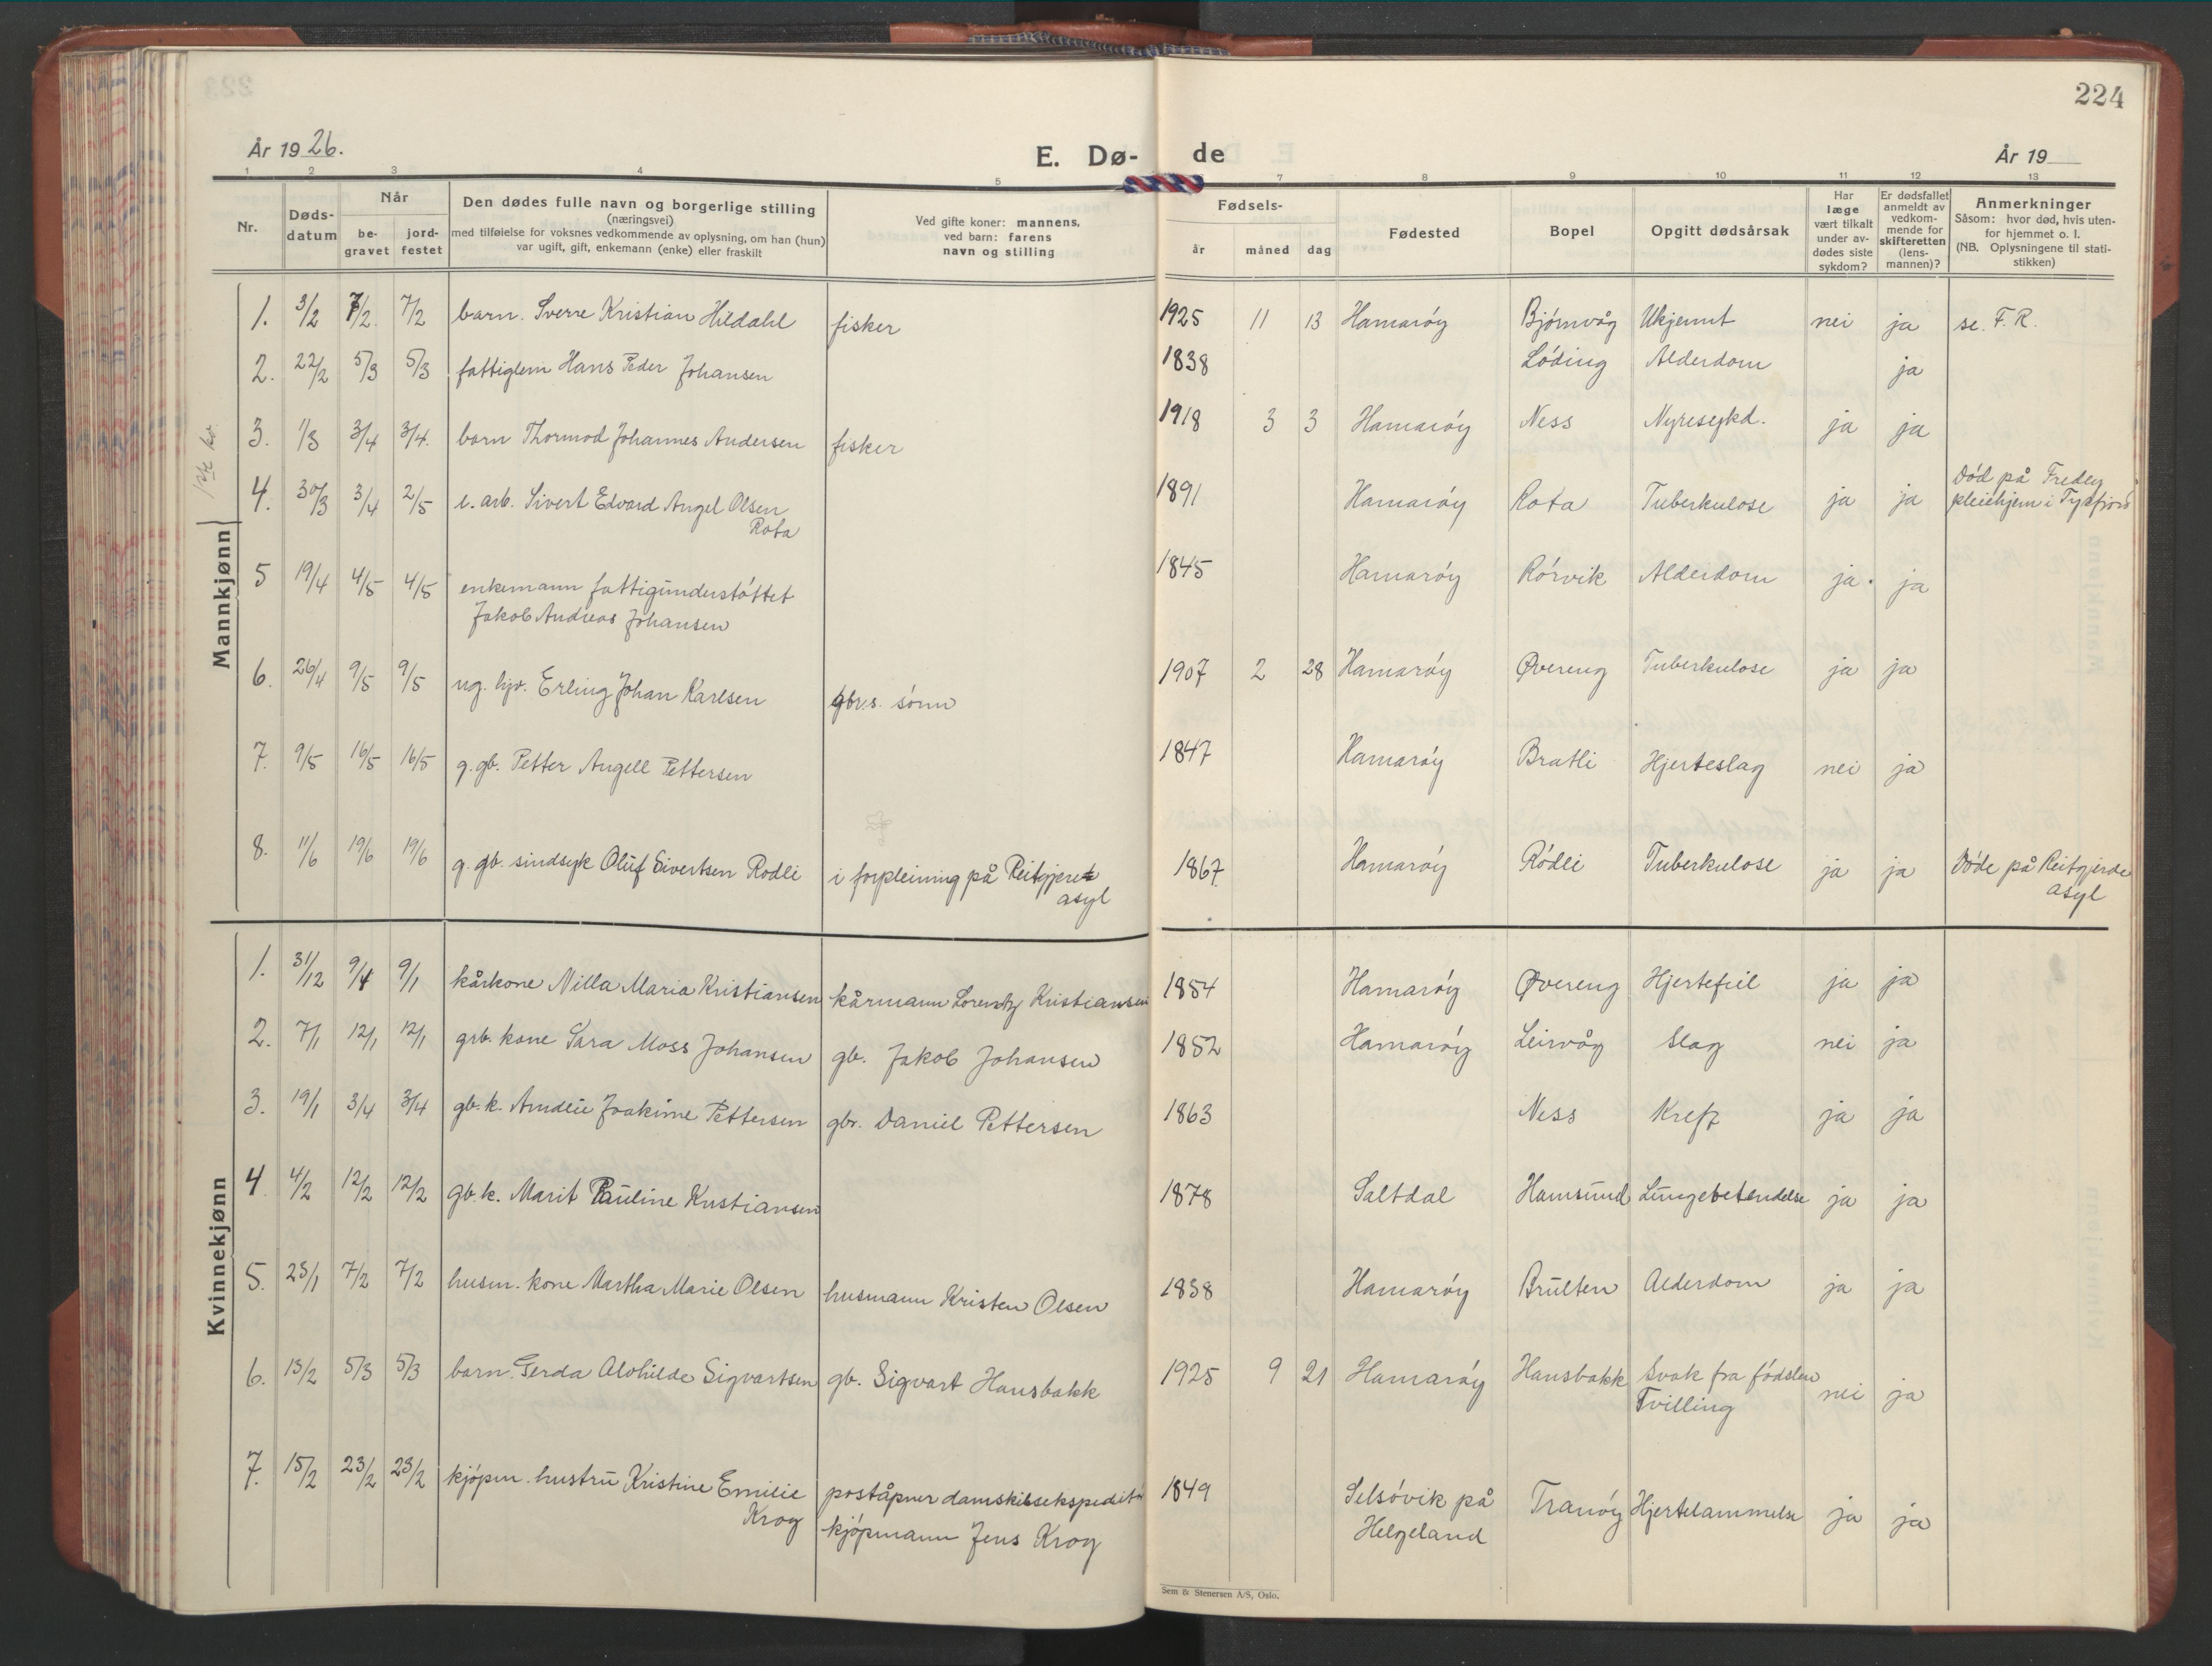 224
År 1926.
E. Dø- de
År 19
1 2 3 4 5 7 8 9 10 11 12 13
Nr.
Døds-
datum
Når
be-
gravet
jord-
festet
Den dødes fulle navn og borgerlige stilling
(næringsvei)
med tilføielse for voksnes vedkommende av oplysning, om han (hun)
var ugift, gift, enkemann (enke) eller fraskilt
Ved gifte koner: mannens,
ved barn: farens
navn og stilling
Fødsels-
år måned dag
Fødested
Bopel
Opgitt dødsårsak
Har
læge
vært tilkalt
under av-
dødes siste
sykdom?
Er dødsfallet
anmeldt av
vedkom-
mende for
skifteretten
(lens-
mannen)?
Anmerkninger
Såsom: hvor død, hvis uten-
for hjemmet o. l.
(NB. Oplysningene til stati-
stikken)
Mannkjønn
1. 3/2 7/2. 7/2 barn. Sverre Kristian Hildahl fisker 1925 11 13 Hamarøy Bjørnvåg Ukjennt nei ja se. F. R.
2. 22/2 5/3 5/3 fattiglem Hans Peder Johansen 1838 Løding Alderdom ja
3. 1/3 3/4 3/4. barn Thormod Johannes Andersen fisker 1918 3 3 Hamarøy Ness Nyresykd. ja ja
4. 30/3 3/4 2/5 e. arb. Sivert Edvard Angel Olsen 1891 Hamarøy Rota Tuberkulose ja ja Død på Fredly
Rota pleiehjem i Tysfjord
5 19/4 4/5 4/5 enkemann fattigunderstøttet 1845 Hamarøy Rørvik Alderdom ja. ja
Jakob Andreas Johansen
6. 26/4 9/5 9/5 ug. hjv. Erling Johan Karlsen gbr.s. sønn 1907 2 28 Hamarøy Øvereng Tuberkulose ja ja
7. 9/5 16/5 16/5 g. gb. Petter Angell Pettersen 1847 Hamarøy Bratli Hjerteslag nei ja
8. 11/6 19/6 19/6 g. gb. sindsyk Oluf Sivertsen Rødli i forpleining på Reitgjeret 1867. Hamarøy Rødli Tuberkulose ja ja Døde på Reitgjerde
asyl asyl
Kvinnekjønn
1. 31/12 9/1 9/1 kårkone Nilla Maria Kristiansen kårmann Lorentz Kristiansen 1854 Hamarøy Øvereng Hjertefeil ja ja
2. 7/1 12/1 12/1 grb. kone Sara Moss Johansen gb. Jakob Johansen 1852 Hamarøy Leirvåg Slag nei ja
3. 19/1 3/4 3/4 gb. k. Amdeie Joakime Pettersen gbr. Daniel Pettersen 1863 Ness Kreft ja ja
4 4/2 12/2 12/2 gb. k. Marit Pauline Kristiansen 1878 Saltdal Hamsund Lungebetendelse ja ja
5. 23/1 7/2 7/2 husm. kone Martha Marie Olsen husmann Kristen Olsen 1838 Hamarøy Brulten Alderdom ja ja
6. 13/2 5/3 5/3 barn. Gerda Alvhilde Sigvartsen gb. Sigvart Hansbakk 1925 9 21 Hamarøy Hansbakk Svak fra fødslen nei ja
Tvilling
7. 15/2 23/2 23/2 kjøpm. hustru Kristine Emilie poståpner damskibsekspeditør 1849 Selsøvik på Tranøy Hjertelammelse ja ja
Krog kjøpmann Jens Krog Helgeland
Sem & Stenersen A/S, Oslo.